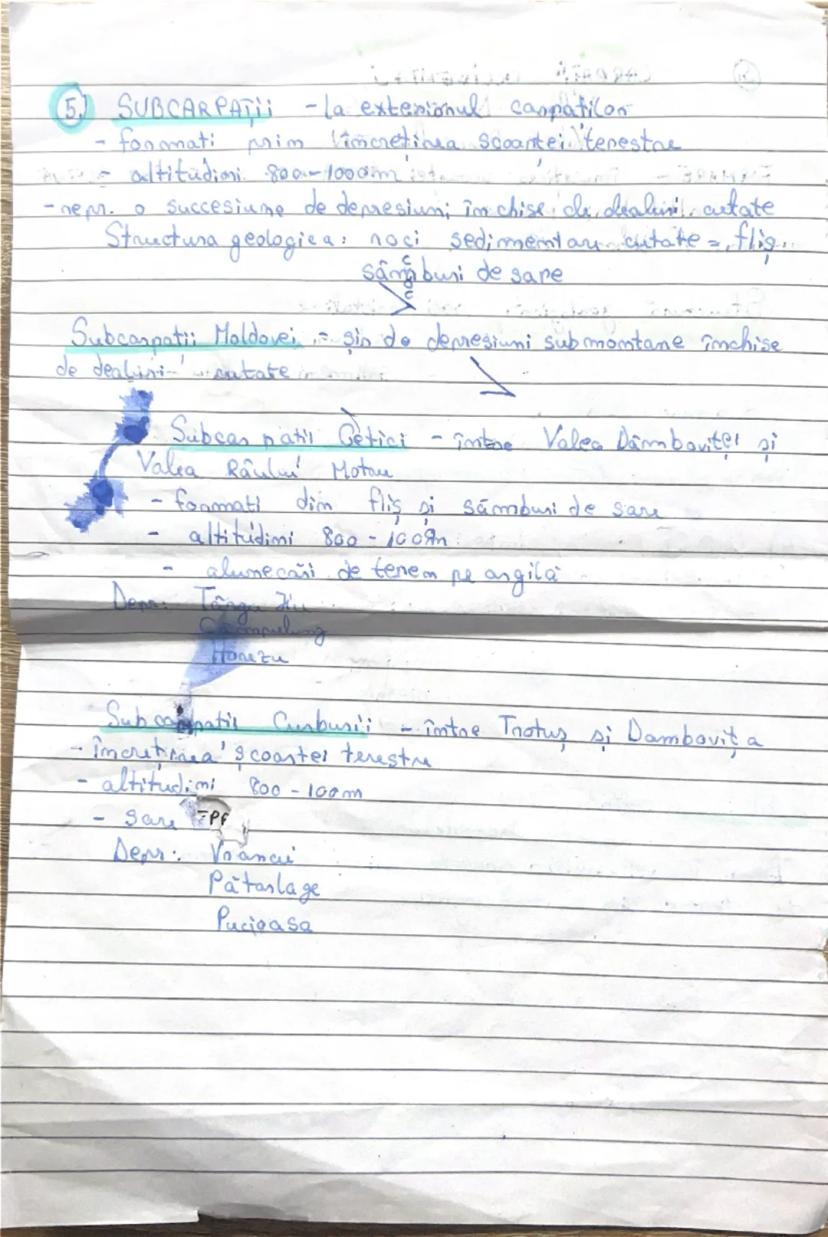 5. SUBCARPAȚII - la exteriorul carpatilor
- formati prin încrețirea scoarței terestre
- altitudini 800-1000m
- repr. o succesiune de depresiuni închise de dealuri cutate
Structura geologica: roci sedimentare cutate = fliș
sâmburi de sare
Subcarpatii Moldovei = șir de depresiuni submontane închise
de dealuri cutate
Subcarpatii Getici - între Valea Dâmboviței și
Valea Râului Motru
- formati din fliș și sâmburi de sare
- altitudini 800 - 100m
- alunecări de teren pe argilă
Depr: Târgu Jiu
Câmpulung
Horezu
Subcarpatii Curburii - între Trotuș și Dambovița
- încrețirea scoartei terestre
- altitudini 800 - 100m
- sare
Depr: Vrancei
Pătarlage
Pucioasa